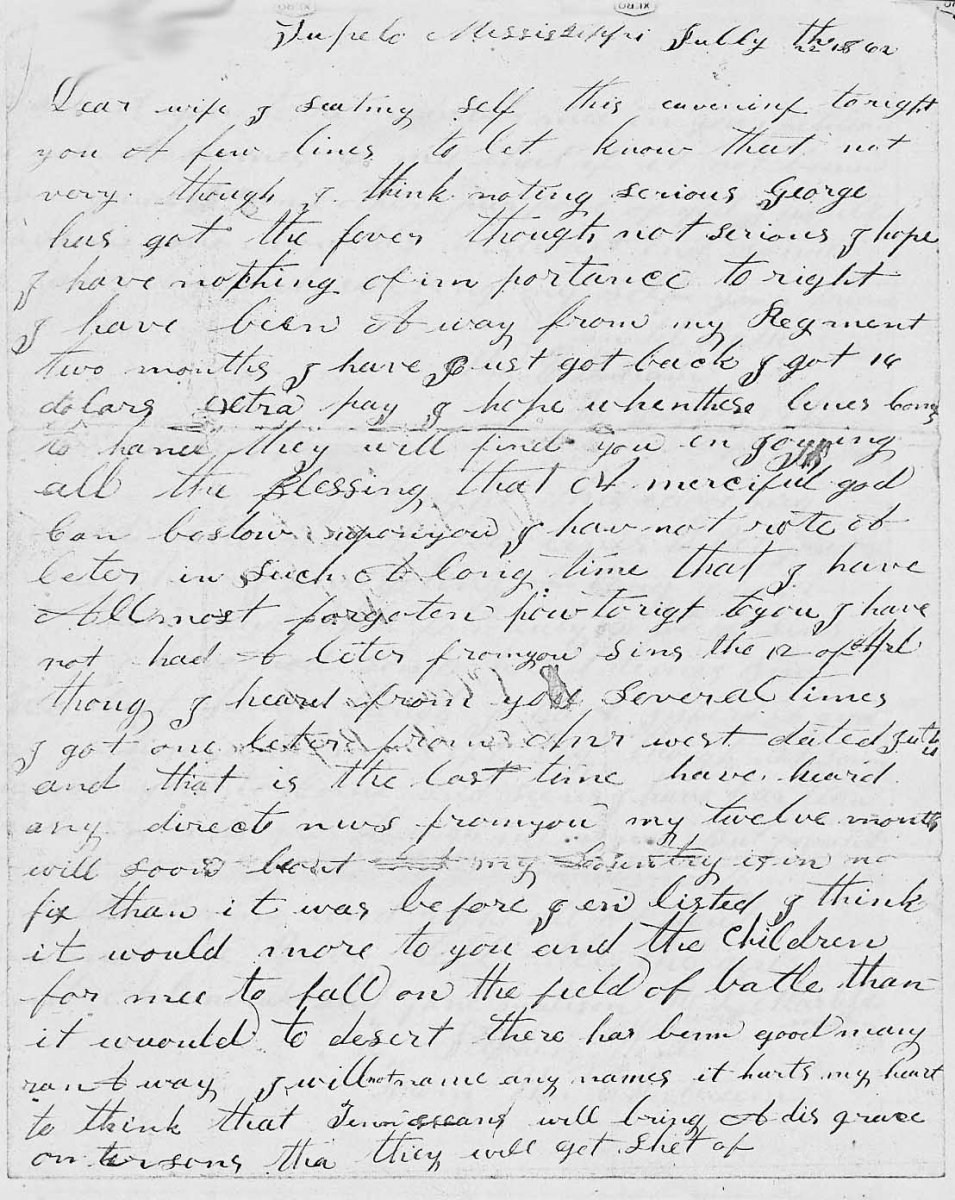 Tupelo Mississippi Jully 22th 1862
Dear wife I seating self this eavening to right
you A few lines to let know that not
very though I think noting serious George
has got the fever though not serious I hope
I have nothing of im portance to right
I have been A way from my Regment
two months I have Just got back I got
dolars extra pay I hope when these lines
to they will find you en Joying
all the Blessing that A merciful god
Can bestow upon you I hav not rote A
leter in such A long time that I have
All most forgoten how to rigt to you I have
not had A leter from you sins the 12 of
thoug I heard from you several times
I got one leter from west dated
and that is the last time have heard
any direct nuws from you my twelve month
will soon my Country is in no
fix than it was before I en listed I think
it would more to you and the Children
for mee to fall on the field of batle than
it wuould to desert there has benn good many
ran A way I will not name any names it hurts my heart
to think that Tennesseans will bring A dis grace
on sons tha they will get shet of